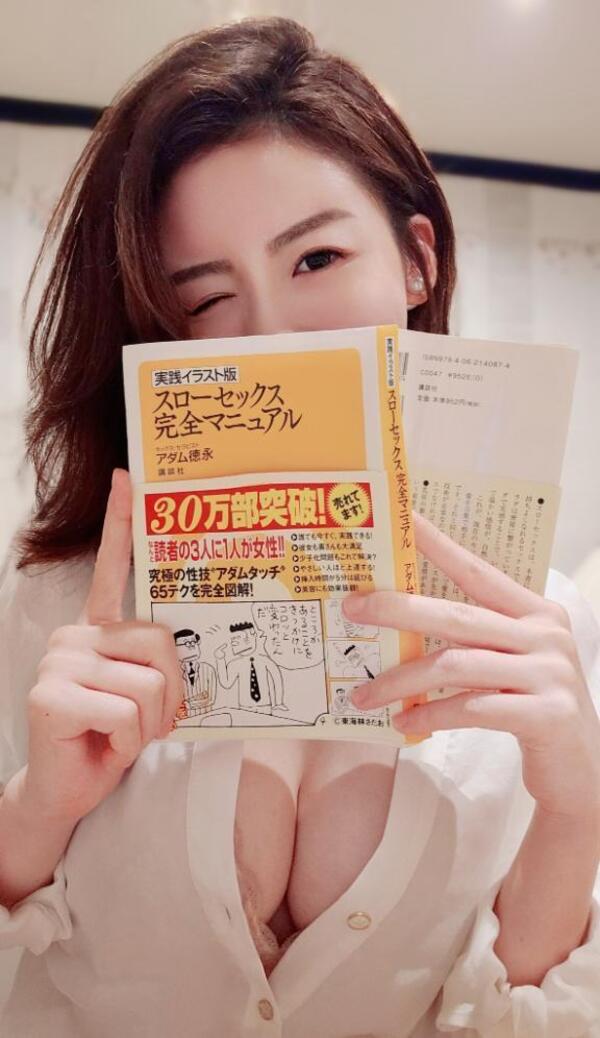 実践イラスト版
スローセックス
完全マニュアル
セックス・セラピスト
アダム徳永
講談社
30万部突破!
売れて
ます!
なんと読者の3人に1人が女性!!
究極の性技"アダムタッチ"
65テクを完全図解!
▶誰でも今すぐ、実践できる!
▶彼女も奥さんも大満足
▶少子化問題もこれで解決?
▶やさしい人ほど上達する!
▶挿入時間が5分は延びる
▶美容にも効果抜群!
ところが
あることを
きっかけに
コロッと
変わったん
だ
©東海林さだお
実践イラスト版 スローセックス 完全マニュアル アダム
ISBN978-4-06-214087-4
C0047 ¥952E(0)
講談社
定価:本体952円(税別)
●スローセックスは、本書